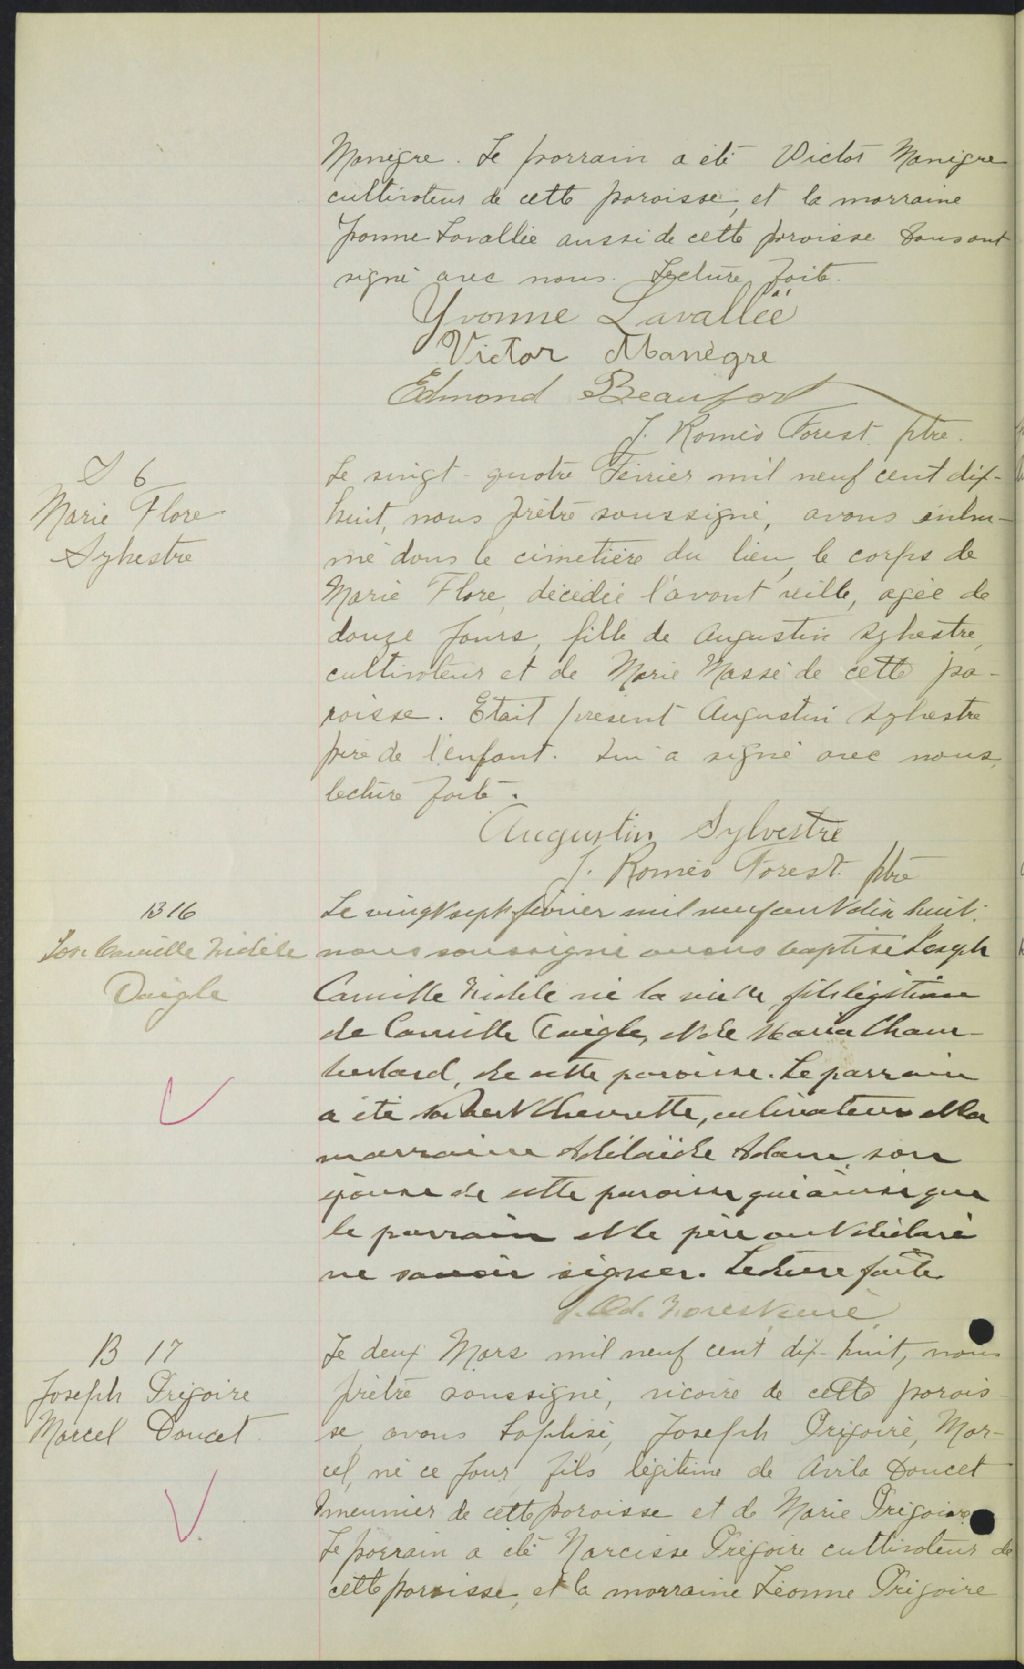 Manègre. Le parrain a été Victor Manègre
cultivateur de cette paroisse, et la marraine
Yvonne Lavallée aussi de cette paroisse tous ont
signé avec nous. Lecture faite.
Yvonne Lavallée
Victor Manègre
Edmond Beaufort
J. Roméo Forest ptre.
S 6
Marie Flore
Sylvestre
Le vingt-quatre Février mil neuf cent dix-
huit, nous prêtre soussigné, avons inhu-
mé dans le cimetière du lieu, le corps de
Marie Flore, décédée l'avant veille, agée de
douze jours, fille de Augustin Sylvestre,
cultivateur et de Marie Massé de cette pa-
roisse. Etait présent Augustin Sylvestre
père de l'enfant. qui a signé avec nous,
lecture faite.
Augustin Sylvestre
J. Roméo Forest ptre
B 16
Jos. Camille Fidèle
Daigle
Le vingt sept février mil neuf cent dix huit
nous soussigné avons baptisé Joseph
Camille Fidèle né la veille, fils légitime
de Camille Daigle, et de Maria Cham-
berland, de cette paroisse. Le parrain
a été Chevrette, cultivateur et la
marraine Adélaïde Adam, son
épouse de cette paroisse qui ainsi que
le parrain et le père ont déclaré
ne savoir signer. Lecture faite
J. Od. Forest curé
B 17
Joseph Grégoire
Marcel Doucet
Le deux Mars mil neuf cent dix-huit, nous
prêtre soussigné, vicaire de cette parois-
se, avons baptisé, Joseph Grégoire, Mar-
cel, né ce jour, fils légitime de Avila Doucet
meunier de cette paroisse et de Marie Grégoire
Le parrain a été Narcisse Grégoire cultivateur de
cette paroisse, et la marraine Léonne Grégoire